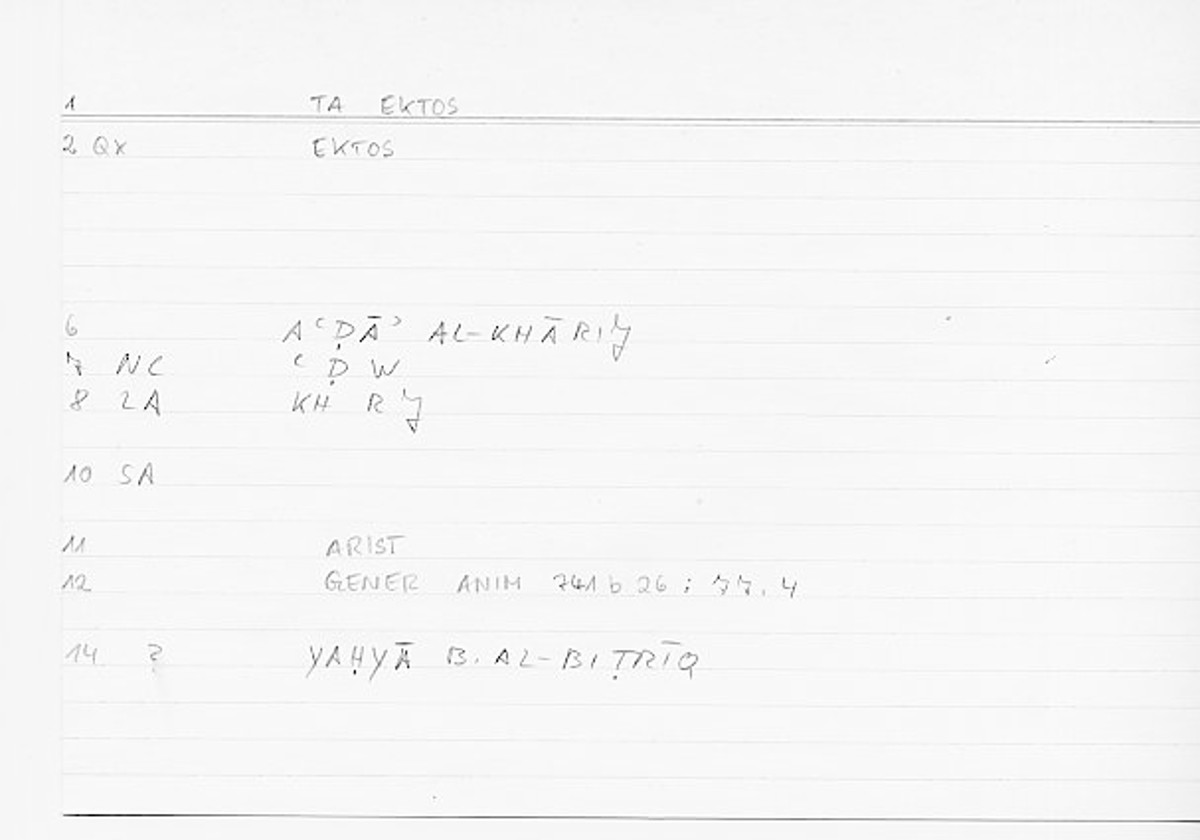 1 TA EKTOS
2 QX EKTOS
6 AʿḌĀʾ AL-KHĀRIJ
7 NC ʿ Ḍ W
8 LA KH R J
10 SA
11 ARIST
12 GENER ANIM 741 b 26 ; 77.4
14 ? YAḤYĀ B. AL-BIṬRĪQ